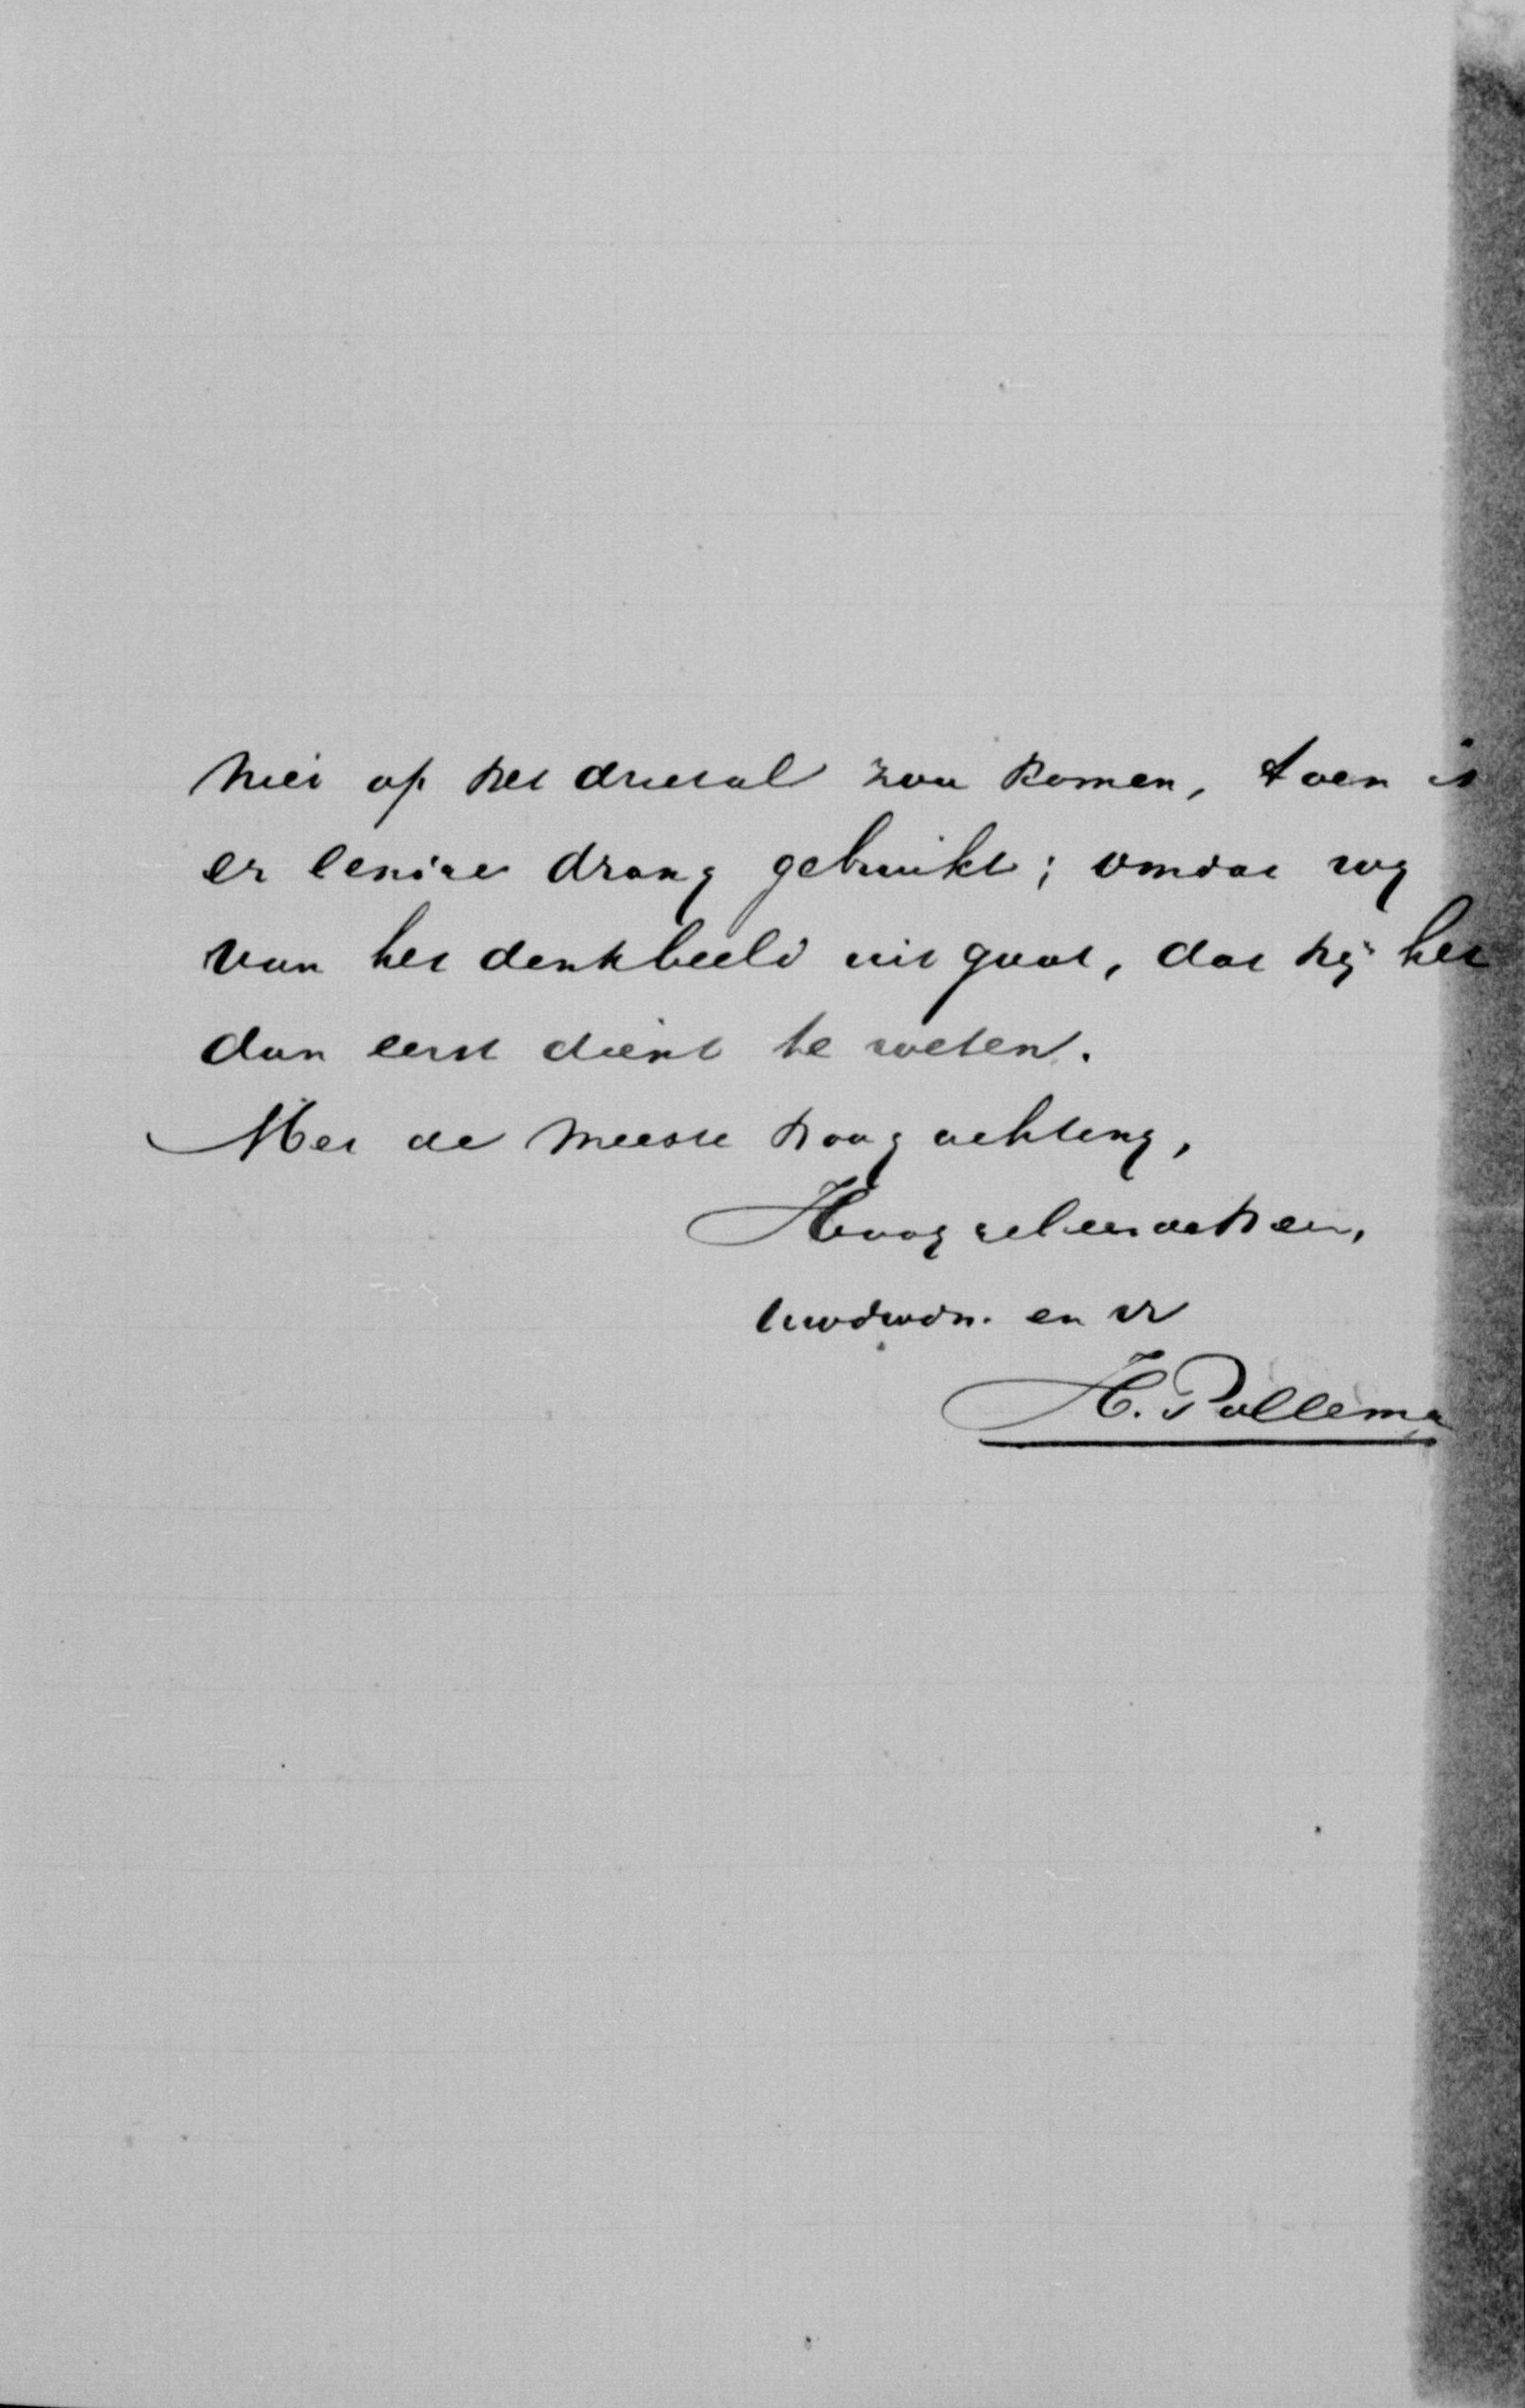 niet op het drietal zou komen, toen is
er eenige drang gebruikt; omdat
van het denkbeeld uit gaat, dat hij het
dan eerst dient te weten.
Met de meeste hoogachting,
Hooggeleerde heer,
Uwdwdn. en vr
H. Pollema